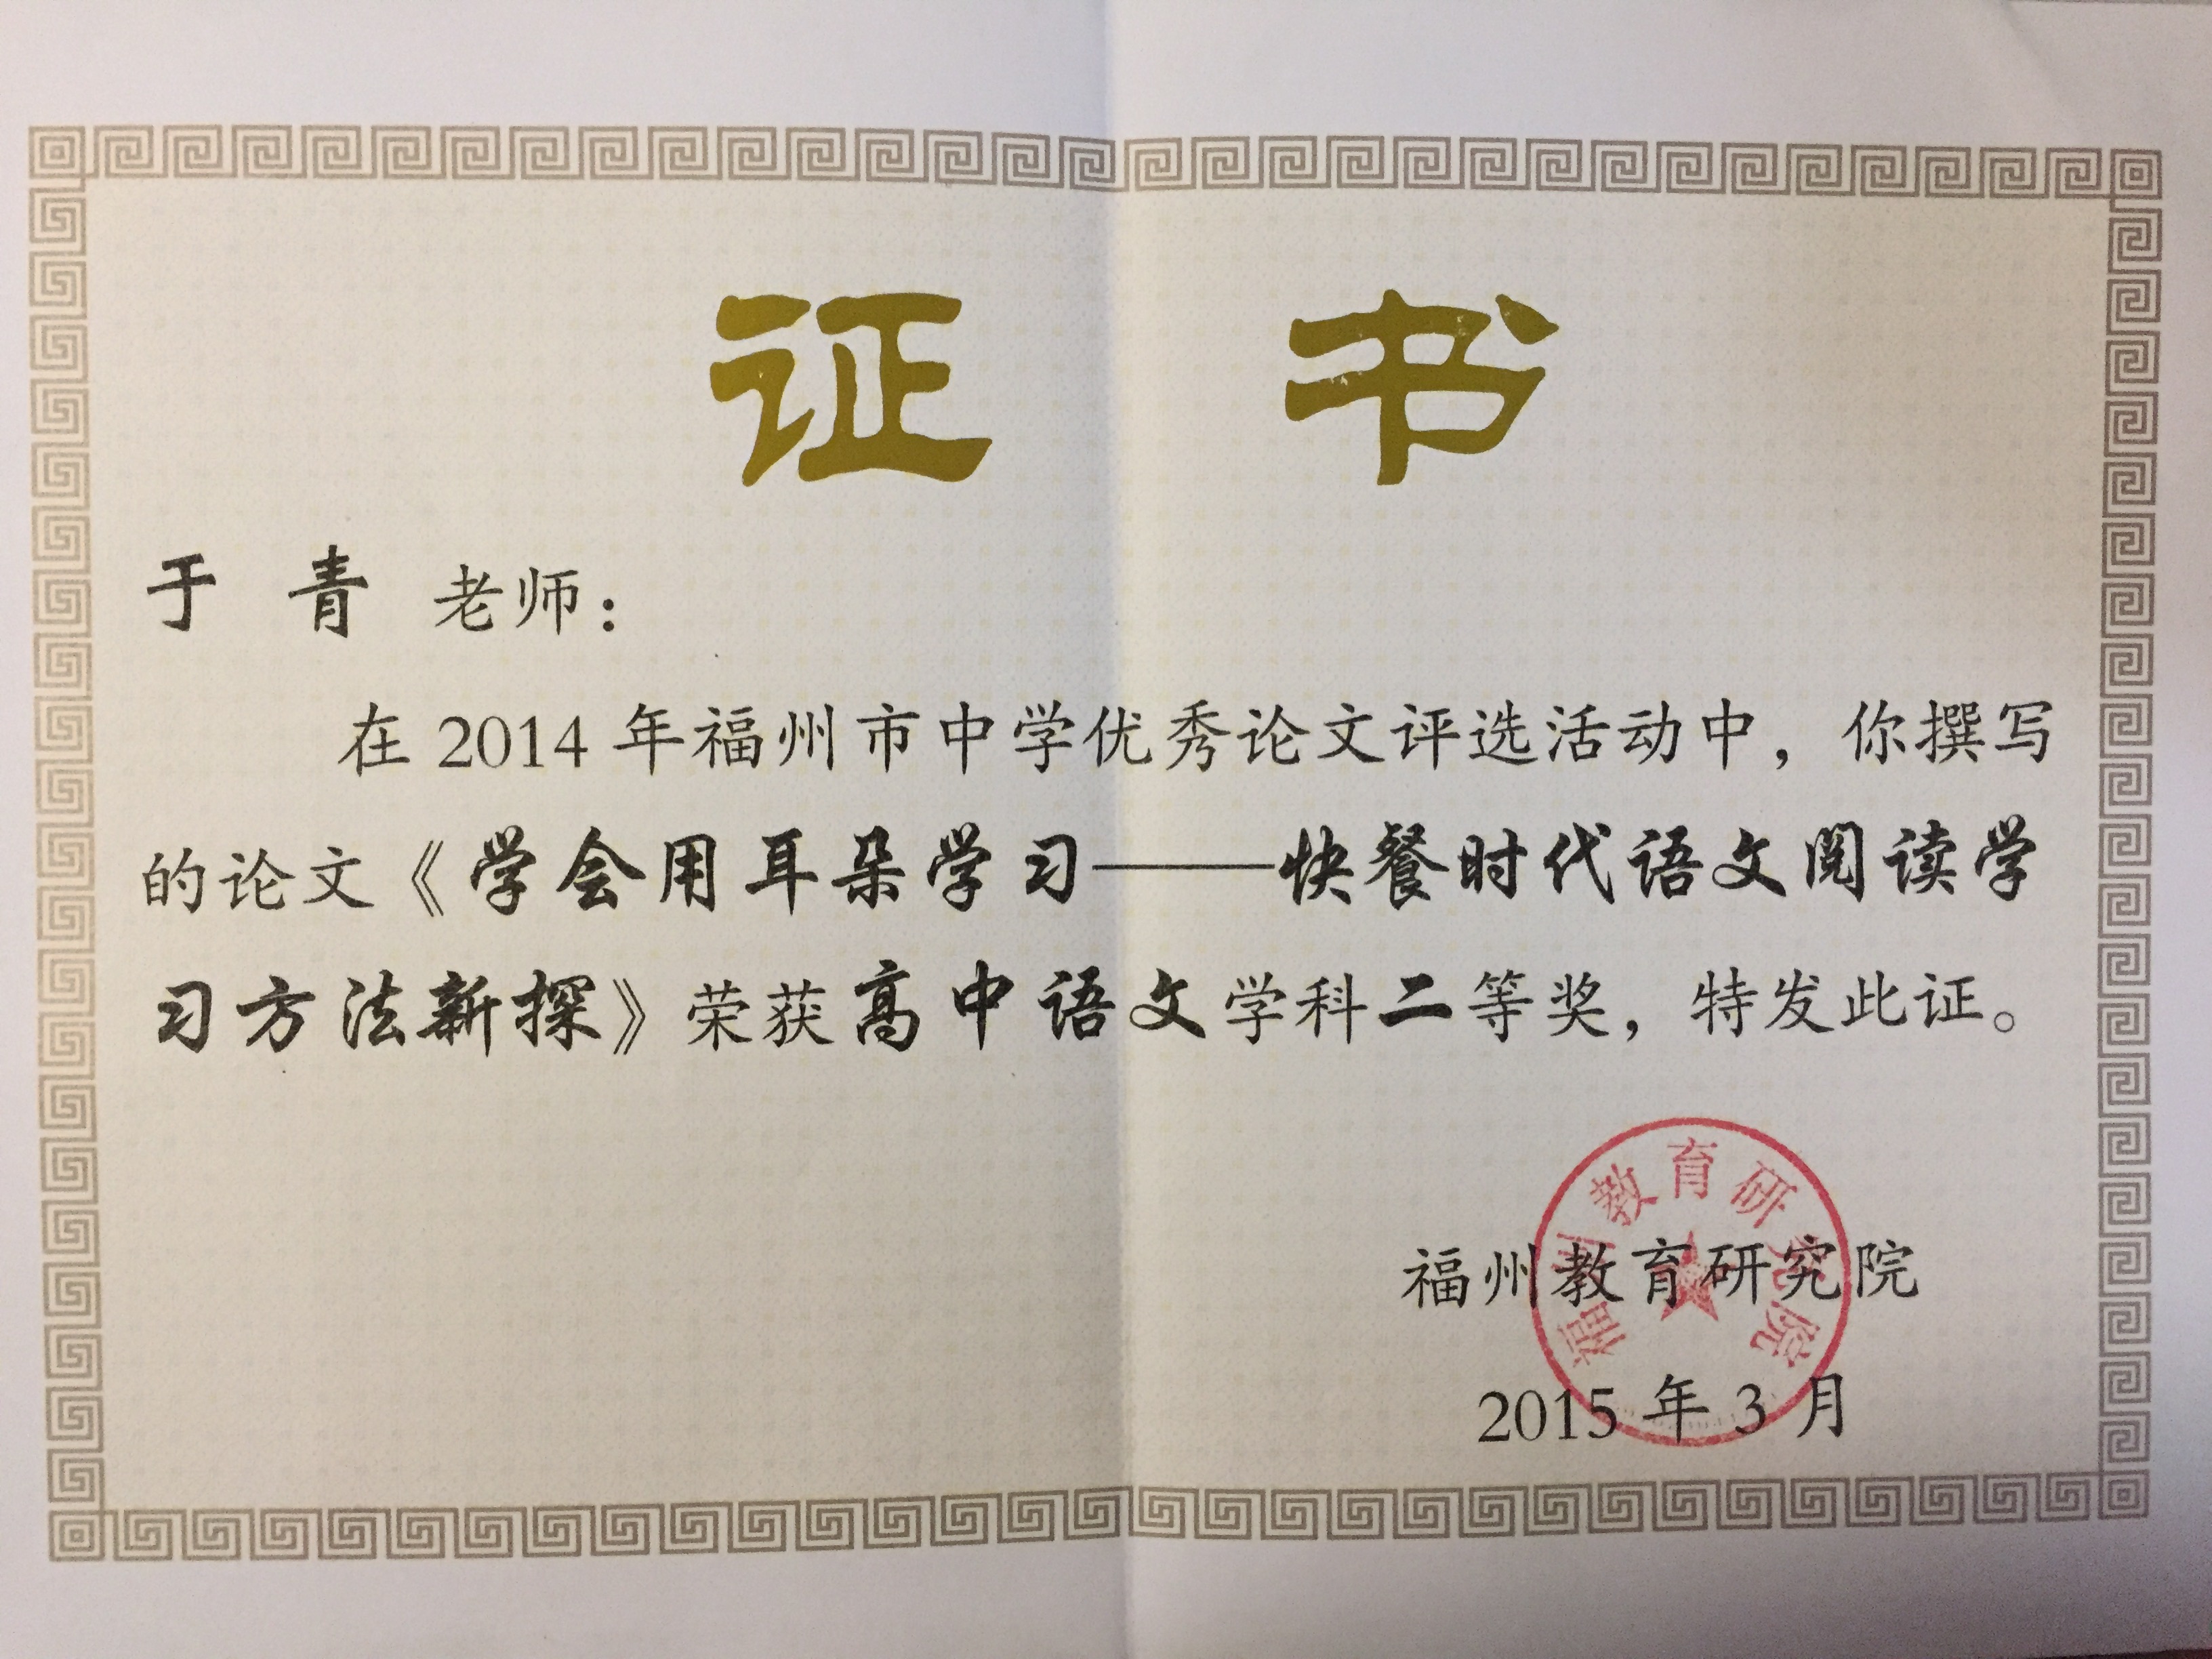 证 书
于 青 老师：
在 2014 年福州市中学优秀论文评选活动中，你撰写
的论文《学会用耳朵学习——快餐时代语文阅读学
习方法新探》荣获高中语文学科二等奖，特发此证。
福州教育研究院
福州教育研究院
2015 年 3 月